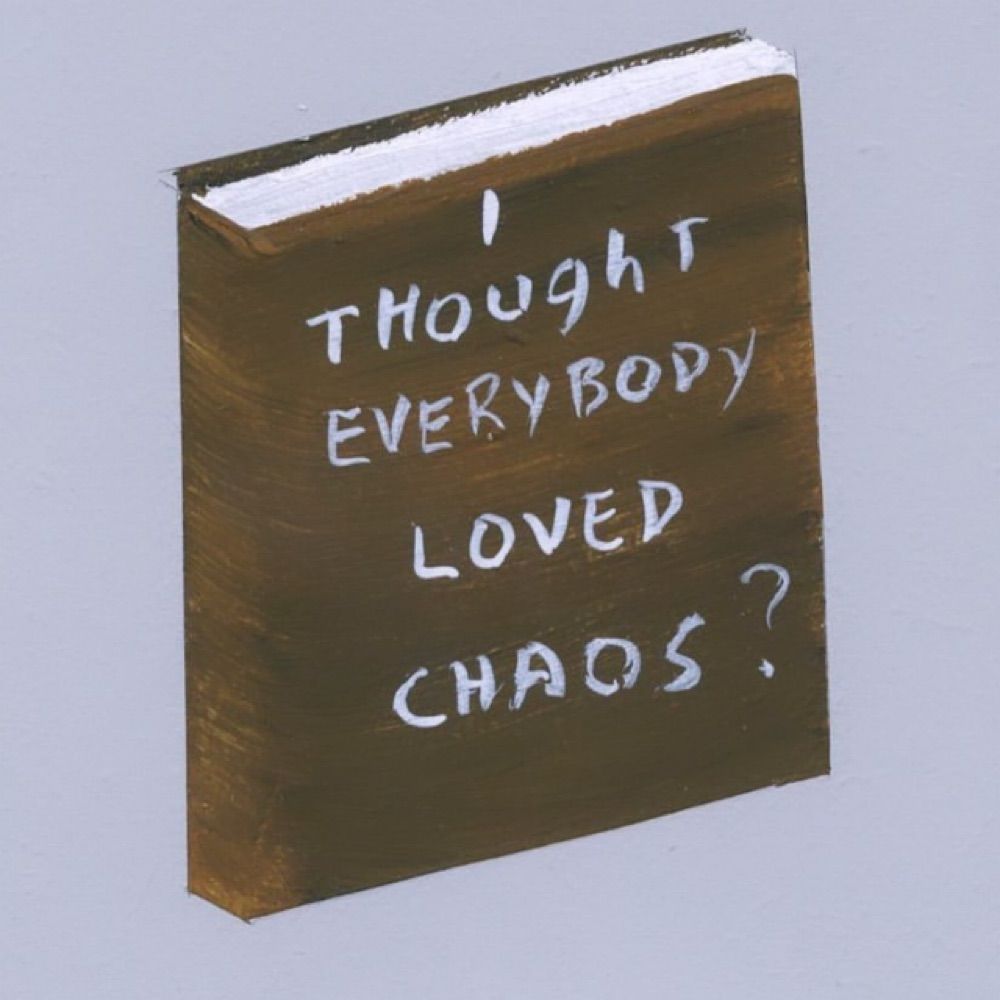 I
THOUghT
EVERYBODY
LOVED
CHAOS?